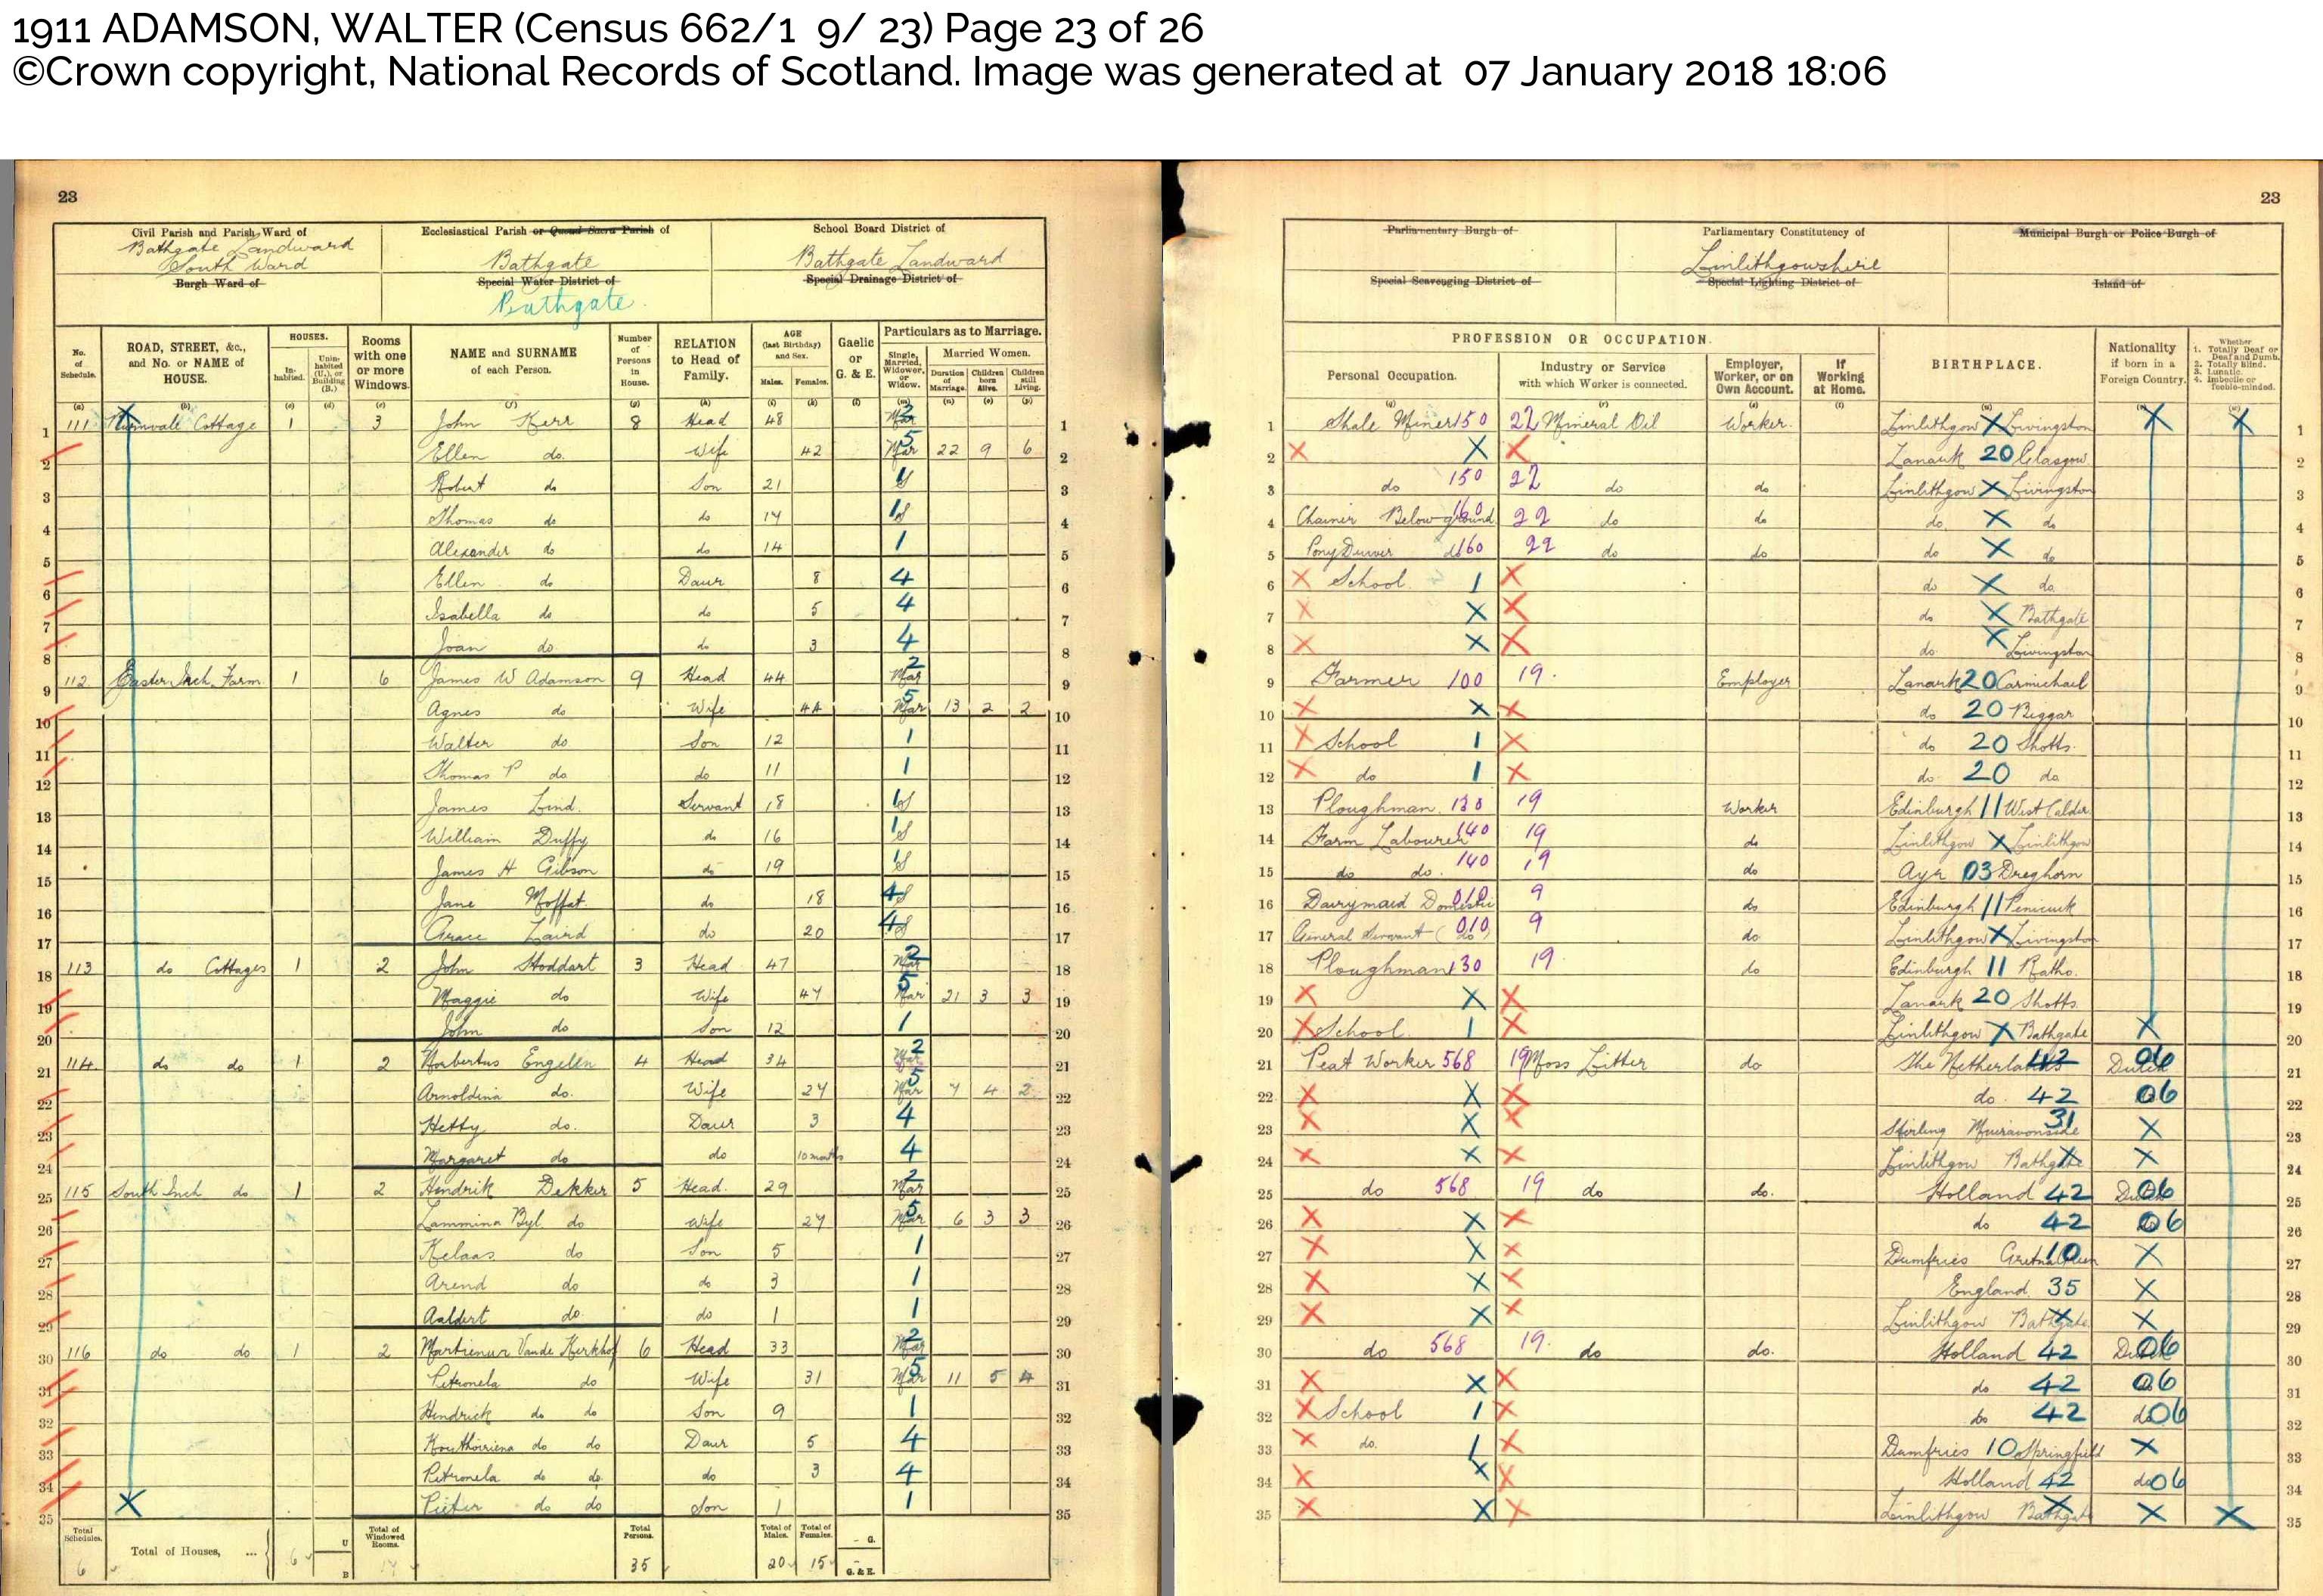 1911 ADAMSON, WALTER (Census 662/1 9/ 23) Page 23 of 26
©Crown copyright, National Records of Scotland. Image was generated at 07 January 2018 18:06
23
Civil Parish and Parish Ward of Bathgate Landward South Ward
Ecclesiastical Parish or Quoad Sacra Parish of Bathgate
School Board District of Bathgate Landward
Burgh Ward of
Special Water District of Bathgate
Special Drainage District of
No. of Schedule. ROAD, STREET, &c., and No. or NAME of HOUSE. HOUSES. Inhabited. Uninhabited (U.), or Building (B.) Rooms with one or more Windows. NAME and SURNAME of each Person. Number of Persons in House. RELATION to Head of Family. AGE (last Birthday) and Sex. Males. Females. Gaelic or G. & E. Particulars as to Marriage. Single, Married, Widower, or Widow. Married Women. Duration of Marriage. Children born Alive. Children still Living.
1 111 Cottage 1 3 John Kerr 8 Head 48 Mar 2
2 Ellen do. Wife 42 Mar 5 22 9 6
3 Robert do Son 21 S 1
4 Thomas do do 17 1 S
5 Alexander do do 14 1
6 Ellen do Daur 8 4
7 Isabella do do 5 4
8 Joan do do 3 4
9 112 Easter Inch Farm 1 6 James W Adamson 9 Head 44 Mar 2
10 Agnes do Wife 44 Mar 5 13 2 2
11 Walter do Son 12 1
12 Thomas P do do 11 1
13 James Lind. Servant 18 1 S
14 William Duffy do 16 1 S
15 James H Gibson do 19 1 S
16 Jane Moffat do 18 4 S
17 Grace Laird do 20 4 S
18 113 do Cottages 1 2 John Stoddart 3 Head 47 Mar 2
19 Maggie do Wife 47 Mar 5 21 3 3
20 John do Son 12 1
21 114 do do 1 2 Norbertus Engelen 4 Head 34 Mar 2
22 Arnoldina do. Wife 27 Mar 5 7 4 2
23 Hetty do. Daur 3 4
24 Margaret do do 10 months 4
25 115 South Inch do 1 2 Hendrik Dekker 5 Head. 29 Mar 2
26 Lammina Byl do Wife 27 Mar 5 6 3 3
27 Kelaas do Son 5 1
28 Arend do do 3 1
29 Aaldert do do 1 1
30 116 do do 1 2 Martienus Van de Kerkhof 6 Head 33 Mar 2
31 Petronela do Wife 31 Mar 5 11 5 4
32 Hendrick do do Son 9 1
33 do do Daur 5 4
34 Petronela do do do 3 4
35 Pieter do do Son 1 1
Total Schedules. 6 Total of Houses, ... 6 U B Total of Windowed Rooms. 17 Total Persons. 35 Total of Males. 20 Total of Females. 15 - G. - G. & E.
23
Parliamentary Burgh of
Parliamentary Constitutency of Linlithgowshire
Municipal Burgh or Police Burgh of
Special Scavenging District of
Special Lighting District of
Island of
PROFESSION OR OCCUPATION. Personal Occupation. Industry or Service with which Worker is connected. Employer, Worker, or on Own Account. If Working at Home. BIRTHPLACE. Nationality if born in a Foreign Country. Whether 1. Totally Deaf or Deaf and Dumb. 2. Totally Blind. 3. Lunatic. 4. Imbecile or Feeble-minded.
1 Shale Miner 150 22 Mineral Oil Worker. Linlithgow X Livingston
2 X X X Lanark 20 Glasgow
3 do 150 22 do do Linlithgow X Livingston
4 Chainer Below ground 160 22 do do do. X do
5 Pony Driver do 160 22 do do do X do
6 X School 1 X do X do.
7 X X X do X Bathgate
8 X X X do X Livingston
9 Farmer 100 19. Employer Lanark 20 Carmichael
10 X X X do 20 Biggar
11 X School 1 X do 20 Shotts.
12 X do 1 X do 20 do
13 Ploughman. 130 19 Worker Edinburgh 11 West Calder
14 Farm Labourer 140 19 do Linlithgow X Linlithgow
15 do do. 140 19 do Ayr 03 Dreghorn
16 Dairymaid Domestic 010 9 do Edinburgh 11 Penicuik
17 General Servant (do) 010 9 do Linlithgow X Livingston
18 Ploughman 130 19 do Edinburgh 11 Ratho.
19 X X X Lanark 20 Shotts.
20 X School 1 X Linlithgow X Bathgate X
21 Peat Worker 568 19 Moss Litter do The Netherlands 42 Dutch 06
22 X X X do. 42 do 06
23 X X X Stirling Muiravonside 31 X
24 X X X Linlithgow Bathgate X X
25 do 568 19 do do. Holland 42 Dutch 06
26 X X X do 42 do 06
27 X X X Dumfries Gretna Green 10 X
28 X X X England 35 X
29 X X X Linlithgow Bathgate X X
30 do 568 19. do do. Holland 42 Dutch 06
31 X X X do 42 do 06
32 X School 1 X do 42 do 06
33 X do. 1 X Dumfries 10 Springfield X
34 X X X Holland 42 do 06
35 X X X Linlithgow Bathgate X X X